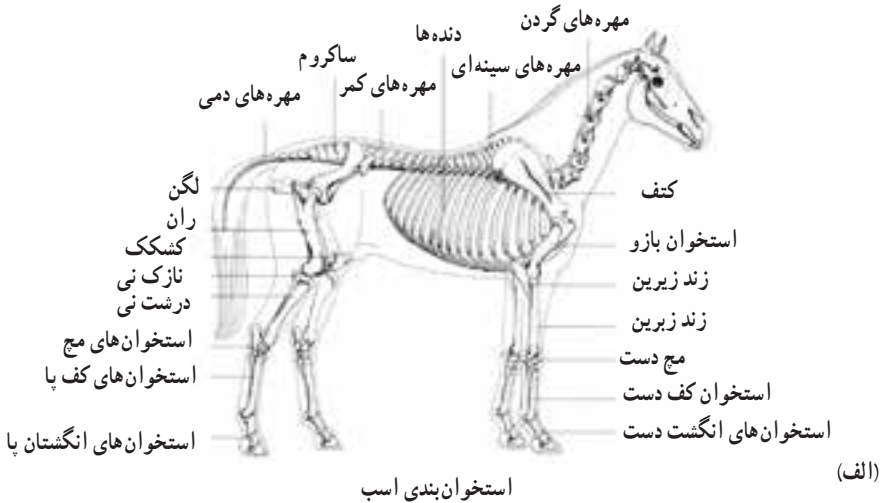 مهره‌های گردن
دنده‌ها
مهره‌های سینه‌ای
ساکروم
مهره‌های کمر
مهره‌های دمی
کتف
استخوان بازو
زند زیرین
زند زبرین
مچ دست
استخوان کف دست
استخوان‌های انگشت دست
لگن
ران
کشکک
نازک نی
درشت نی
استخوان‌های مچ
استخوان‌های کف پا
استخوان‌های انگشتان پا
(الف)
استخوان‌بندی اسب